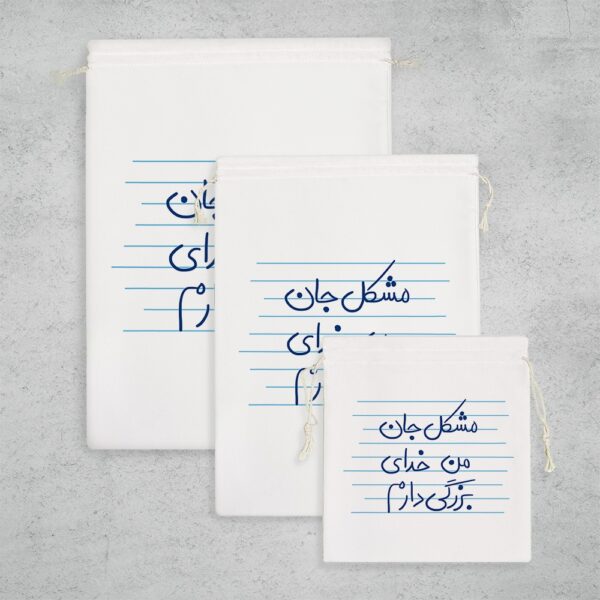 جان
مشکل جان
خدای
مشکل جان
من خدای
بزرگی دارم